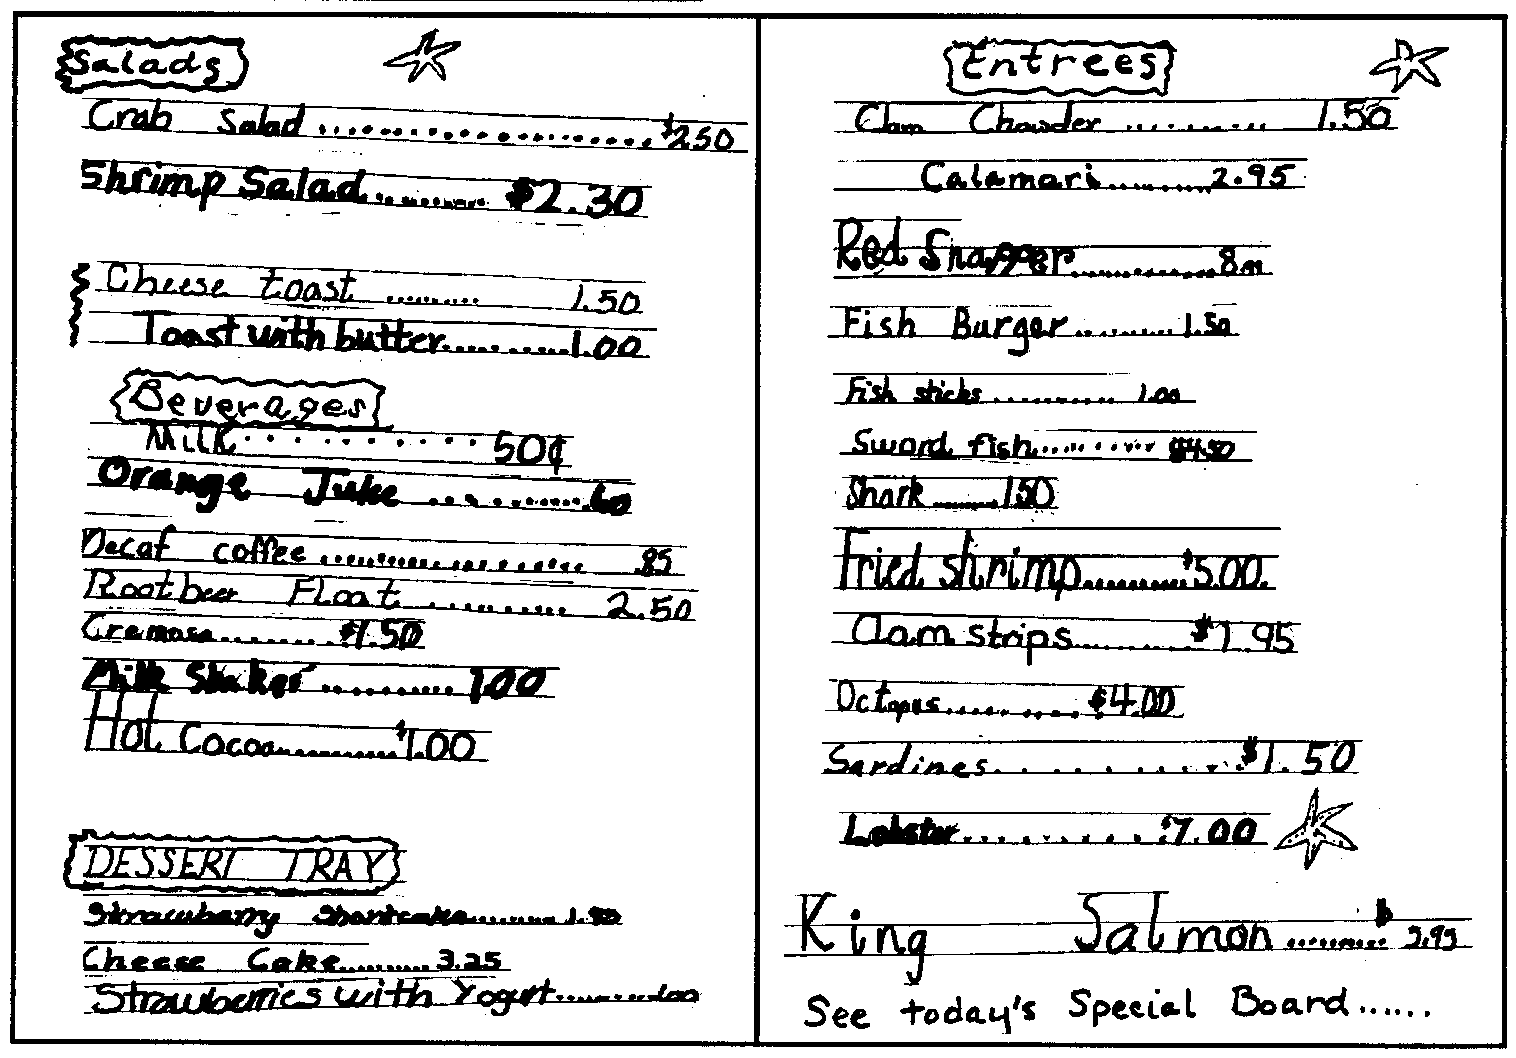 Salads
Crab Salad .................... $2.50
Shrimp Salad .......... $2.30
Cheese toast .......... 1.50
Toast with butter .......... 1.00
Beverages
Milk .......... 50¢
Orange Juice .......... .60
Decaf coffee .................... .85
Rootbeer Float .......... 2.50
Cremosa .......... $1.50
Milk Shakes .......... 1.00
Hot Cocoa .......... $1.00
DESSERT TRAY
Strawberry Shortcake .......... 1.50
Cheese Cake .......... 3.25
Strawberries with Yogurt .......... 1.00
Entrees
Clam Chowder .......... 1.50
Calamari .......... 2.95
Red Snapper .......... 8.00
Fish Burger .......... 1.50
Fish sticks .......... 1.00
Sword fish .......... $4.50
Shark ....... 1.50
Fried shrimp .......... $5.00
Clam strips .......... $1.95
Octopus .......... $4.00
Sardines .......... $1.50
Lobster .......... $7.00
King Salmon .......... 3.95
See today's Special Board ......